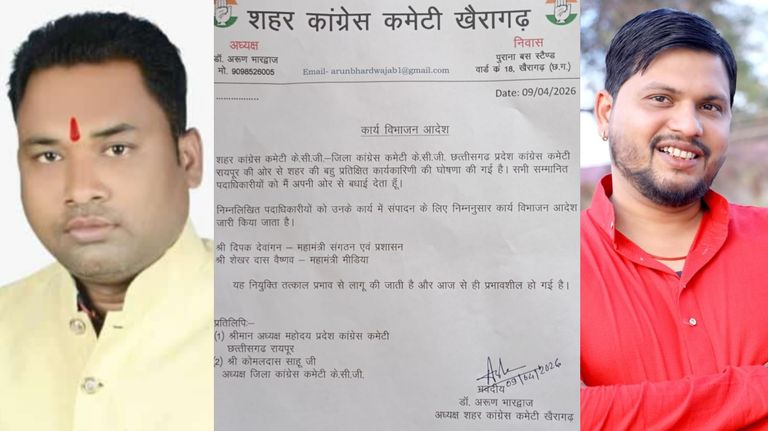 शहर कांग्रेस कमेटी खैरागढ़
अध्यक्ष
डॉ. अरूण भारद्वाज
मो. 9098526005
निवास
पुराना बस स्टैण्ड
वार्ड क्र 18, खैरागढ़ (छ.ग.)
Email- arunbhardwajab1@gmail.com
Date: 09/04/2026
कार्य विभाजन आदेश
शहर कांग्रेस कमेटी के.सी.जी.–जिला कांग्रेस कमेटी के.सी.जी. छत्तीसगढ़ प्रदेश कांग्रेस कमेटी
रायपुर की ओर से शहर की बहु प्रतिक्षित कार्यकारिणी की घोषणा की गई है। सभी सम्मानित
पदाधिकारीयों को मैं अपनी ओर से बधाई देता हूँ।
निम्नलिखित पदाधिकारीयों को उनके कार्य में संपादन के लिए निम्ननुसार कार्य विभाजन आदेश
जारी किया जाता है।
श्री दिपक देवांगन – महामंत्री संगठन एवं प्रशासन
श्री शेखर दास वैष्णव – महामंत्री मीडिया
यह नियुक्ति तत्काल प्रभाव से लागू की जाती है और आज से ही प्रभावशील हो गई है।
प्रतिलिपिः–
(1) श्रीमान अध्यक्ष महोदय प्रदेश कांग्रेस कमेटी
छत्तीसगढ़ रायपुर
(2) श्री कोमलदास साहू जी
अध्यक्ष जिला कांग्रेस कमेटी के.सी.जी.
09/04/2026
भवदीय
डॉ. अरूण भारद्वाज
अध्यक्ष शहर कांग्रेस कमेटी खैरागढ़